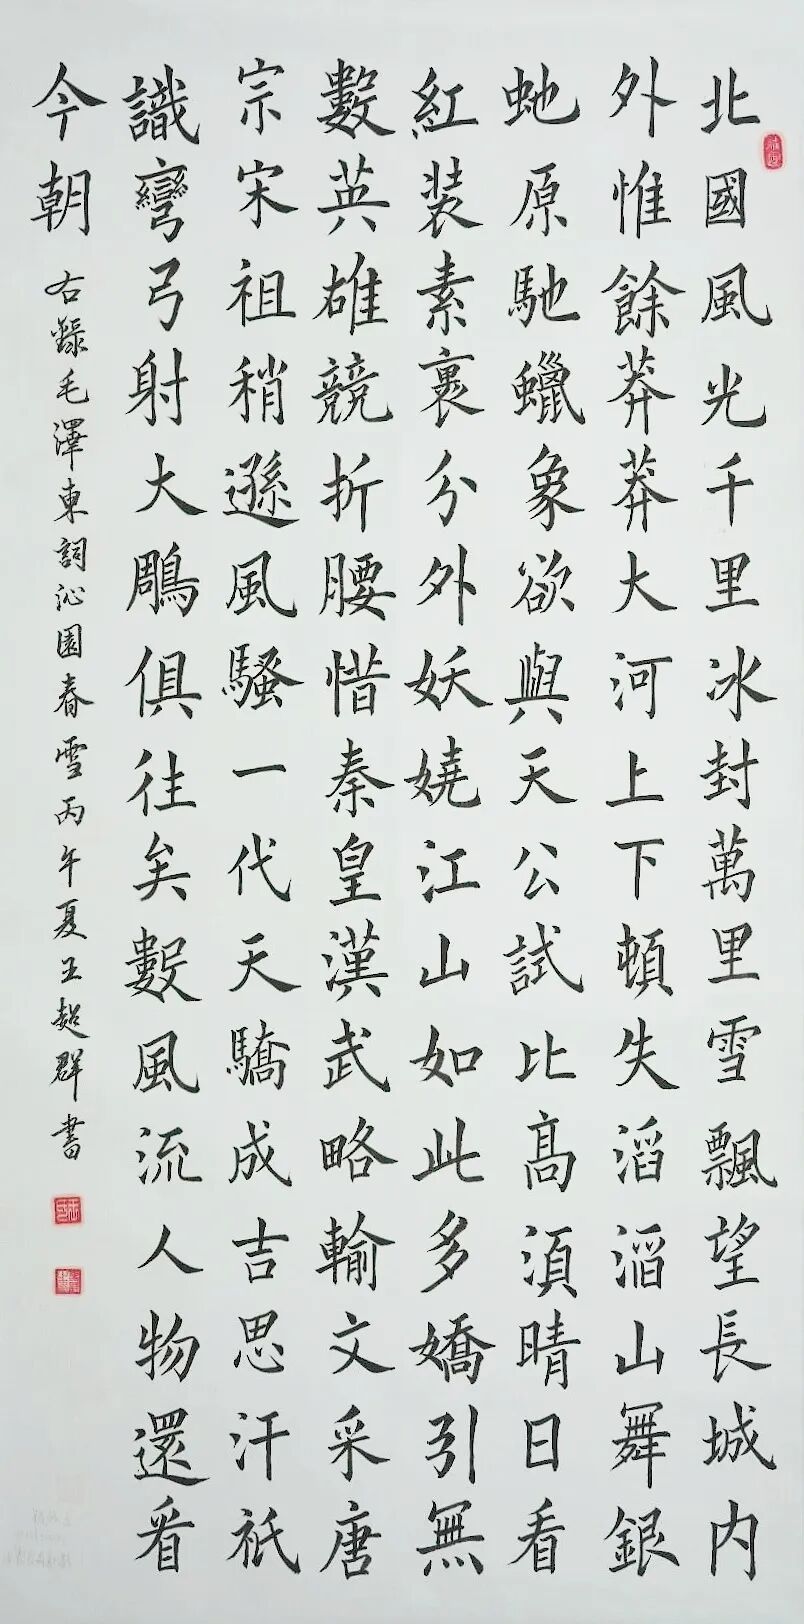 北國風光千里冰封萬里雪飄望長城内
外惟餘莽莽大河上下頓失滔滔山舞銀
虵原馳蠟象欲與天公試比髙須晴日看
紅装素裹分外妖嬈江山如此多嬌引無
數英雄競折腰惜秦皇漢武略輸文采唐
宗宋祖稍遜風騷一代天驕成吉思汗祇
識彎弓射大鵰俱往矣數風流人物還看
今朝
右錄毛澤東詞沁園春雪丙午夏王超群書